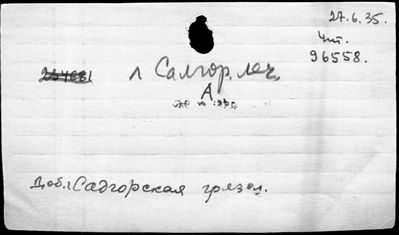 27.6.35.
чит.
96558.
л Салгор. леч.
А
Доб.: Садгорская грязел.